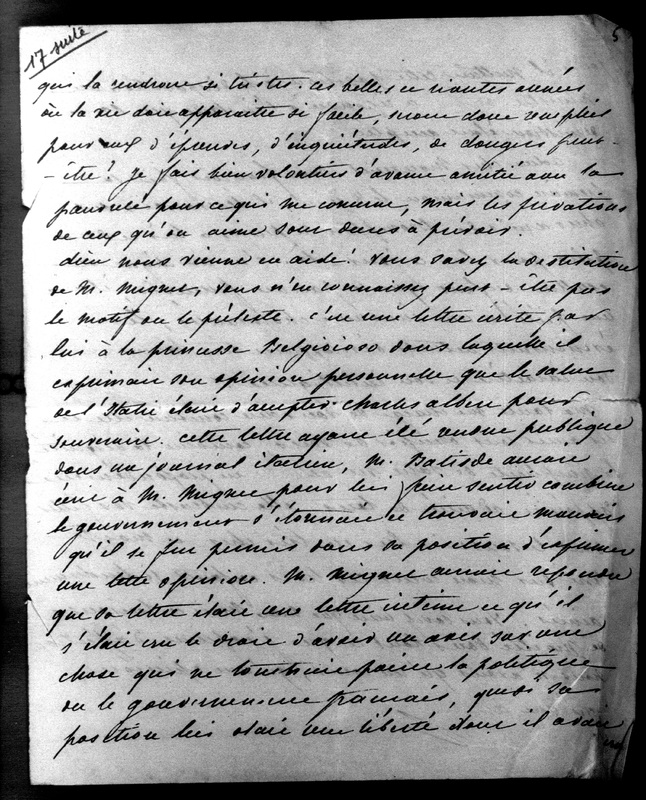 17 suite
5
qui la rendront si tristes. ces belles et riantes années
où la vie doit apparaitre si facile, seront donc remplies
pour eux d'épreuves, d'inquiétudes, de dangers peut-
-être? je fais bien volontiers d'avance amitié avec la
pauvreté pour ce qui me concerne, mais les privations
de ceux qu'on aime sont dures à prévoir.
dieu nous vienne en aide! vous savez la destitution
de M. Mignet, vous n'en connaissez peut-être pas
le motif ou le prétexte. c'est une lettre écrite par
lui à la princesse Belgioioso dans laquelle il
exprimait son opinion personnelle que le salut
de l'Italie était d'accepter Charles albert pour
souverain. cette lettre ayant été rendue publique
dans un journal italien, M. Bastide aurait
écrit à M. Mignet pour lui faire sentir combien
le gouvernement s'étonnait et trouvait mauvais
qu'il se fut permis dans sa position d'exprimer
une telle opinion. M. Mignet aurait répondu
que sa lettre était une lettre intime et qu'il
s'était cru le droit d'avoir un avis sur une
chose qui ne touchait point la politique
ou le gouvernement français, que si sa
position lui otait une liberté dont il avait